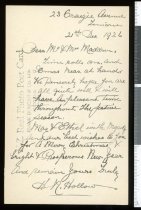 23 Craigie Avenue
21st Dec 1926
Dear Mr & Mrs
Time rolls on, and
Xmas near at hand
We sincerely hope you are
all quite well & will
have a pleasant time
throughout the festive
season
May & Ethel with
best wishes to
for A Merry Christmas &
bright & Prosperous New Year
And remain Yours truly
Post Card